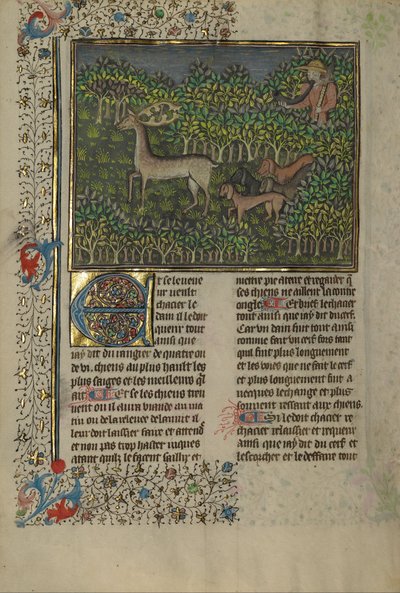 Et se le veneur
ur veult
chacier le
dain il le doit
querir tout
ainsi que
iay dit du rangier de quatre ou
de vi. chiens au plus hault les
plus saiges et les meilleurs ql
ait Et se les chiens treu
uent ou il aura viande au ma
tin ou de la releuee
leur doit laissier faire et attend
et non pas trop haster iusques
atant quilz le facent saillir et
mettre pie a terre et regarder q
ses chiens ne aillent la contre
ongle Et doit le chacier
tout ainsi que iay dit du cerf
Car vn dain fuit tout ainsi
comme fait vn cerf fors tant
quil fuit plus longuement
et les voies que ne fait le cerf
et plus longuement fuit a
uecques le change et plus
souuent ressait aux chiens
Si le doit chacier re
chacier relaissier et requerir
ainsi que iay dit du cerf et
lescorcher et le deffaire tout